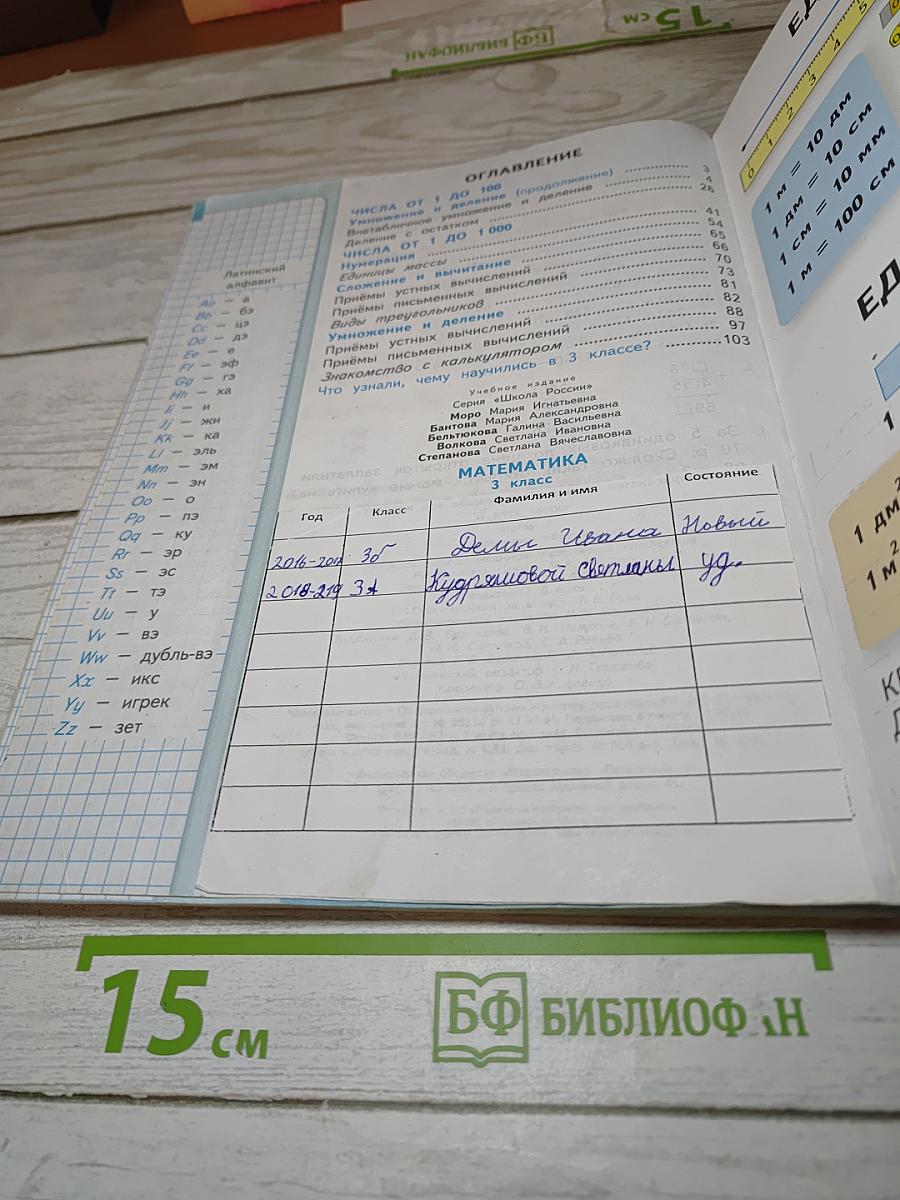 15 см
БФ БИБЛИОФАН
ОГЛАВЛЕНИЕ
ЧИСЛА ОТ 1 ДО 100
Умножение и деление (продолжение) 3
Внетабличное умножение и деление 4
Деление с остатком 26
ЧИСЛА ОТ 1 ДО 1 000
Нумерация 41
Единицы массы 54
Сложение и вычитание 65
Приёмы устных вычислений 66
Приёмы письменных вычислений 70
Виды треугольников 73
Умножение и деление 81
Приёмы устных вычислений 82
Приёмы письменных вычислений 88
Знакомство с калькулятором 97
Что узнали, чему научились в 3 классе? 103
Учебное издание
Серия «Школа России»
Моро Мария Игнатьевна
Бантова Мария Александровна
Бельтюкова Галина Васильевна
Волкова Светлана Ивановна
Степанова Светлана Вячеславовна
МАТЕМАТИКА
3 класс
Год Класс Фамилия и имя Состояние
3б Ивана Новый
3А Светланы уд.
Латинский
алфавит
Aa — а
Bb — бэ
Cc — цэ
Dd — дэ
Ee — е
Ff — эф
Gg — гэ
Hh — ха
Ii — и
Jj — жи
Kk — ка
Ll — эль
Mm — эм
Nn — эн
Oo — о
Pp — пэ
Qq — ку
Rr — эр
Ss — эс
Tt — тэ
Uu — у
Vv — вэ
Ww — дубль-вэ
Xx — икс
Yy — игрек
Zz — зет
0 1 2 3 4 5
1 м = 10 дм
1 дм = 10 см
1 см = 10 мм
1 м = 100 см
ЕД
1
1 дм²
1 м²
15 см
БФ БИБЛИОФ АН